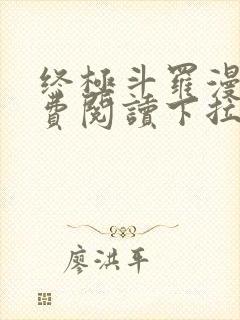 终極斗羅漫
費閱讀下拉
廖洪平